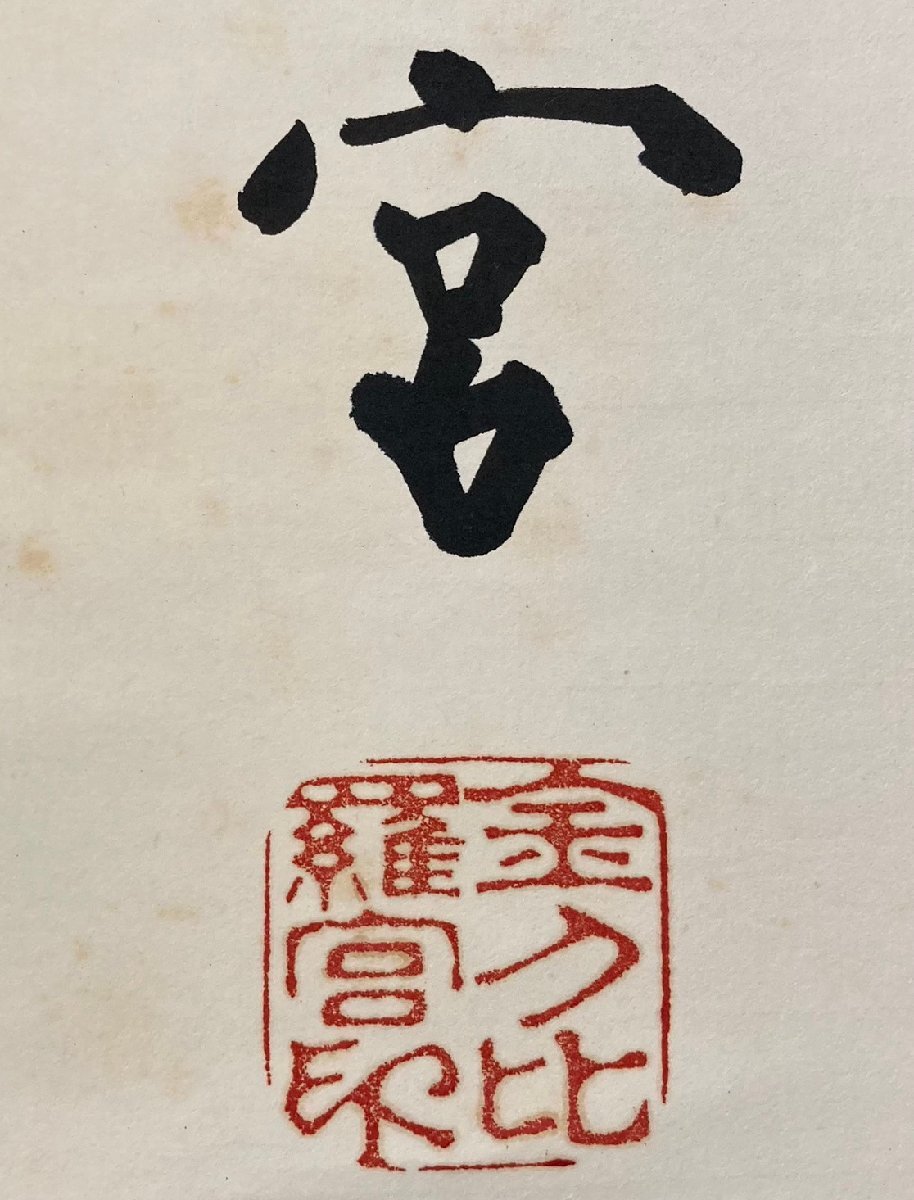 宮
金刀比
羅宮印